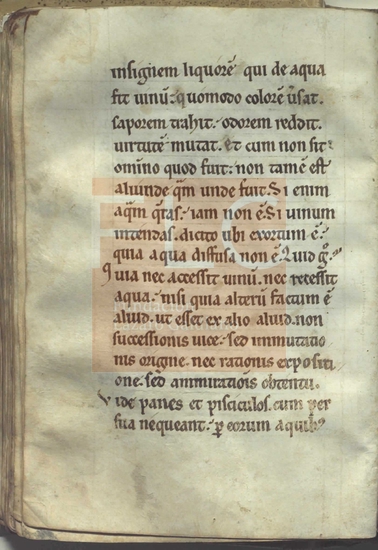 insignem liquorē qui de aqua
fit uinū: quomodo colorē ūsat.
saporem trahit. odorem reddit.
uirtutē mutat. et cum non sit
omīno quod fuit: non tamē est
aliunde qm̄ unde fuit. Si enim
aqm̄ q̄ras. iam non ē. Si uinum
intendas. dicito ubi exortum ē.
quia aqua diffusa non ē. Quid gͦ.
Quia nec accessit uinū. nec recessit
aqua. nisi quia alterū factum ē
aliud. ut esset ex alio aliud. non
successionis uice. sed inmutatio
nis origine. nec rationis expositi
one. sed ammirationis obtentu.
Vide panes et pisciculos. cum per
sua nequeant. p̄ eorum aquib;